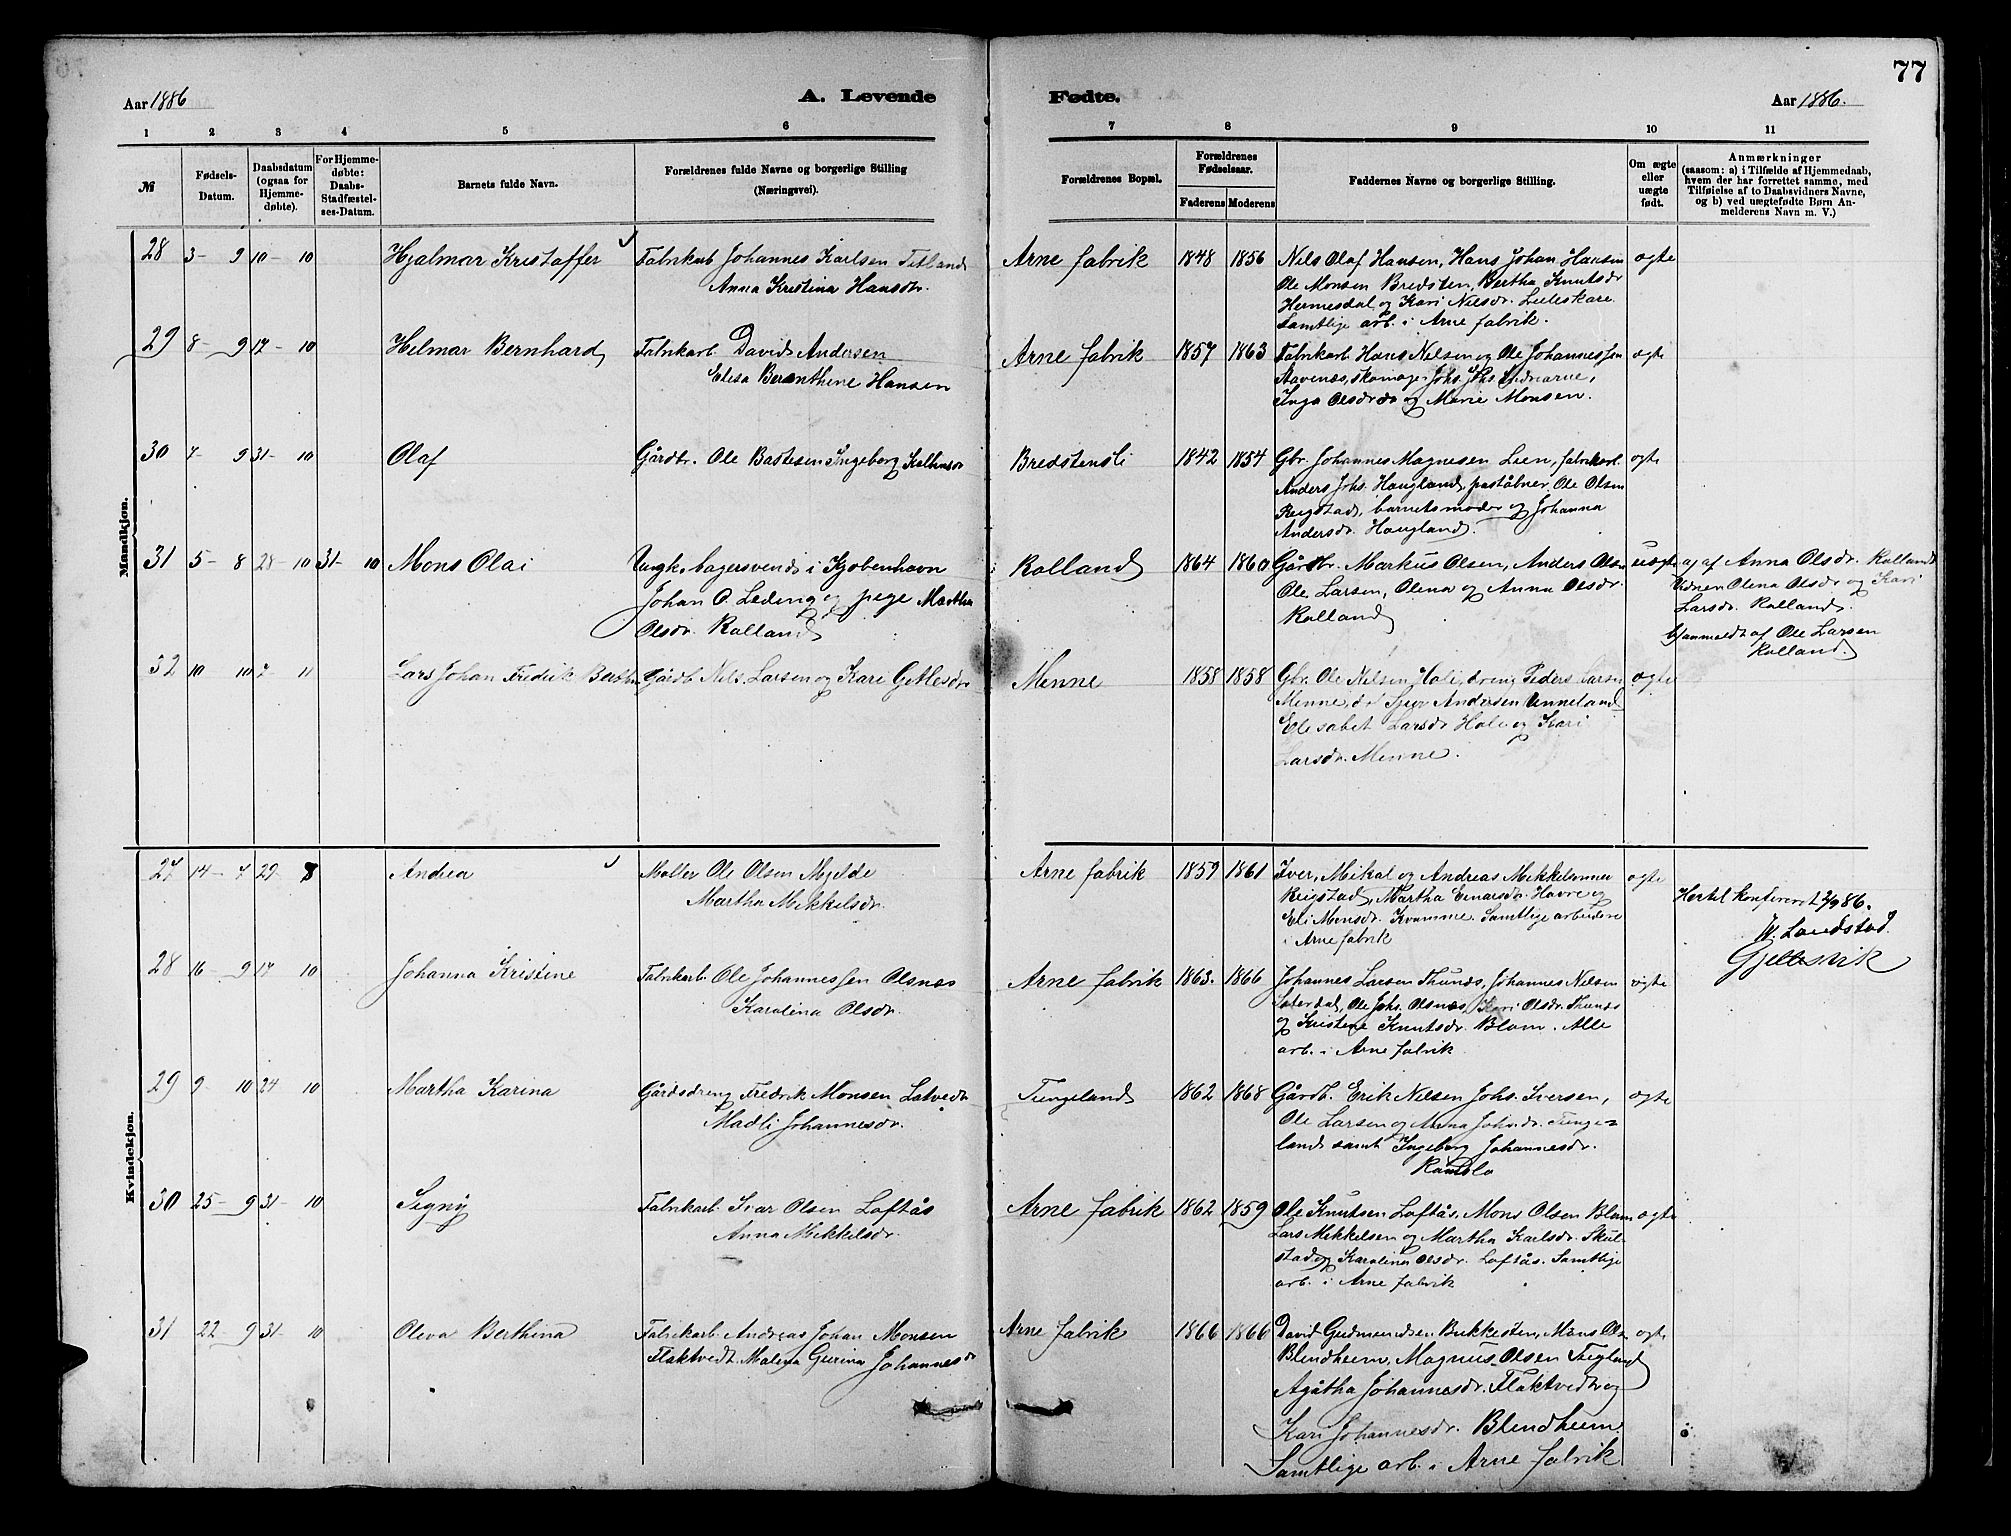 77
Aar 1886
A. Levende
Fødte.
Aar 1886.
1 2 3 4 5 6 7 8 9 10 11
№
Fødsels-
Datum.
Daabsdatum
(ogsaa for
Hjemme-
døbte).
For Hjemme-
døbte:
Daabs-
Stadfæstel-
ses-Datum.
Barnets fulde Navn.
Forældrenes fulde Navne og borgerlige Stilling
(Næringsvei).
Forældrenes Bopæl.
Forældrenes
Fødselsaar.
Faderens Moderens
Faddernes Navne og borgerlige Stilling.
Om ægte
eller
uægte
født.
Anmærkninger
(saasom: a) i Tilfælde af Hjemmedaab,
hvem der har forrettet samme, med
Tilføielse af to Daabsvidners Navne,
og b) ved uægtefødte Børn An-
melderens Navn m. V.)
Mandkjøn.
28 3- 9 10- 10 Hjalmar Kristaffer Fabrikarb Johannes Karlsen Titland Arne fabrik 1848 1856 Nils Olaf Hansen, Hans Johan Hansen ægte
Anna Kristina Hansdr. Ole Monsen Bredsten, Bertha Knutsdr
Hermesdal og Kari Nilsdr. Lileskare
Samtlige arb. i Arne fabrik.
29 8- 9 17- 10 Helmar Bernhard Fabrikarb. David Andersen Arne fabrik 1857 1863 Fabrikarb Hans Nilsen og Ole Johannessen ægte
Elesa Beranthine Hansen Stavenæs, skomager Johs. Johs. Indrearne,
Inga Olsdr og Marie Monsen.
30 7- 9 31- 10 Olaf Gårdbr. Ole Bastesen Ingeborg Bredstensli 1842 1854 Gbr. Johannes Magnesen Lien, fabrikarb. ægte
Anders Johs. Haugland, poståbner Ole Olsen
Reigstad, barnets moder og Johanna
Andersdr. Haugland.
31 5- 8 28- 10 31- 10 Mons Olai Ungk. bagersvend i Kjøbenhavn Rolland 1864 1860 Gårdbr. Markus Olsen, Anders Olsen uægte a) af Anna Olsdr. Rolland
Johan O. Leding og pige Martha Ole Larsen, Olena og Anna Olsdr. Vidnen Olena Olsdr og Kari
Olsdr. Rolland Rolland Larsdr. Rolland.
b) anmeldt af Ole Larsen
Rolland.
32 10 10 7- 11 Lars Johan Fredrik Gårdb. Nils Larsen og Kari Menne 1858 1858 Gbr. Ole Nilsen Hole, dreng Peder Larsen ægte
Menne, do Sjur Andersen Unneland
Elesabet Larsdr Hole og Kari
Larsdr. Menne.
Kvindekjøn.
27 14- 7 29- 8 Andrea Møller Ole Olsen Mjelde Arne fabrik 1859 1861 Iver, Mikal og Andreas Mikkelsønner ægte
Martha Mikkelsdr. Reigstad, Martha Einarsdr. Havre og Hertil konfereret 2/9 86.
Eli Monsdr. Kvamme. Samtlige arbeidere W. Landstad
i Arne fabrik Gjellesvik
28 16- 9 17- 10 Johanna Kristine Fabrikarb. Ole Johannessen Olsnæs Arne fabrik 1863. 1866 Johannes Larsen Thunæs, Johannes Nilsen ægte
Karolina Olsdr. Saterdal, Ole Johs. Olsnæs, Kari Olsdr. Thunæs
og Kristine Knutsdr. Blom. Alle
arb. i Arne fabrik
29 9- 10 24 10 Martha Karina Gårdsdreng Fredrik Monsen Latvedt Tungeland 1862 1868 Gårdb. Erik Nilsen Johs. Iversen, ægte
Madli Johannesdr. Ole Larsen og Anna Johsdr. Tunge-
land samt Ingeborg Johannesdr.
Ramslo
30 25- 9 31- 10 Signy Fabrikarb. Ivar Olsen Loftås Arne fabrik 1862 1859 Ole Knutsen Loftås, Mons Olsen Blom ægte
Anna Mikkelsdr. Lars Mikkelsen og Martha Karlsdr. Skul-
stad og Karolina Olsdr. Loftås. Samtlige
arb. i Arne fabrik
31 22- 9 31- 10 Oleva Berthina Fabrikarb. Andreas Johan Monsen Arne fabrik 1866 1866 David Gudmundsen Bukkesten, Mons Ols ægte
Flaktvedt. Malena Gurina Johannesdr Blendheim, Magnus Olsen Tuegland
Agåtha Johannesdr. Flaktvedt og
Kari Johannesdr. Blendheim.
Samtlige arb. i Arne fabrik